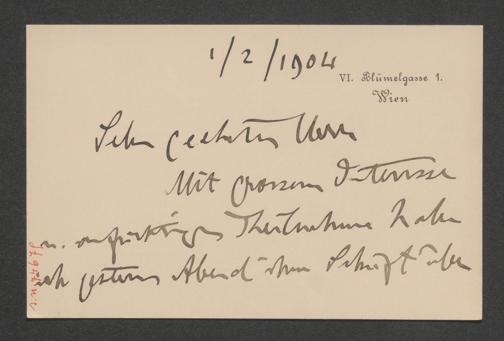 1/2/1904
VI. Blümelgasse 1.
Wien
Sehr geehrter Herr
Mit grossem Interesse
u. aufrichtiger Theilnahme habe
ich gestern Abend Ihre Schrift über